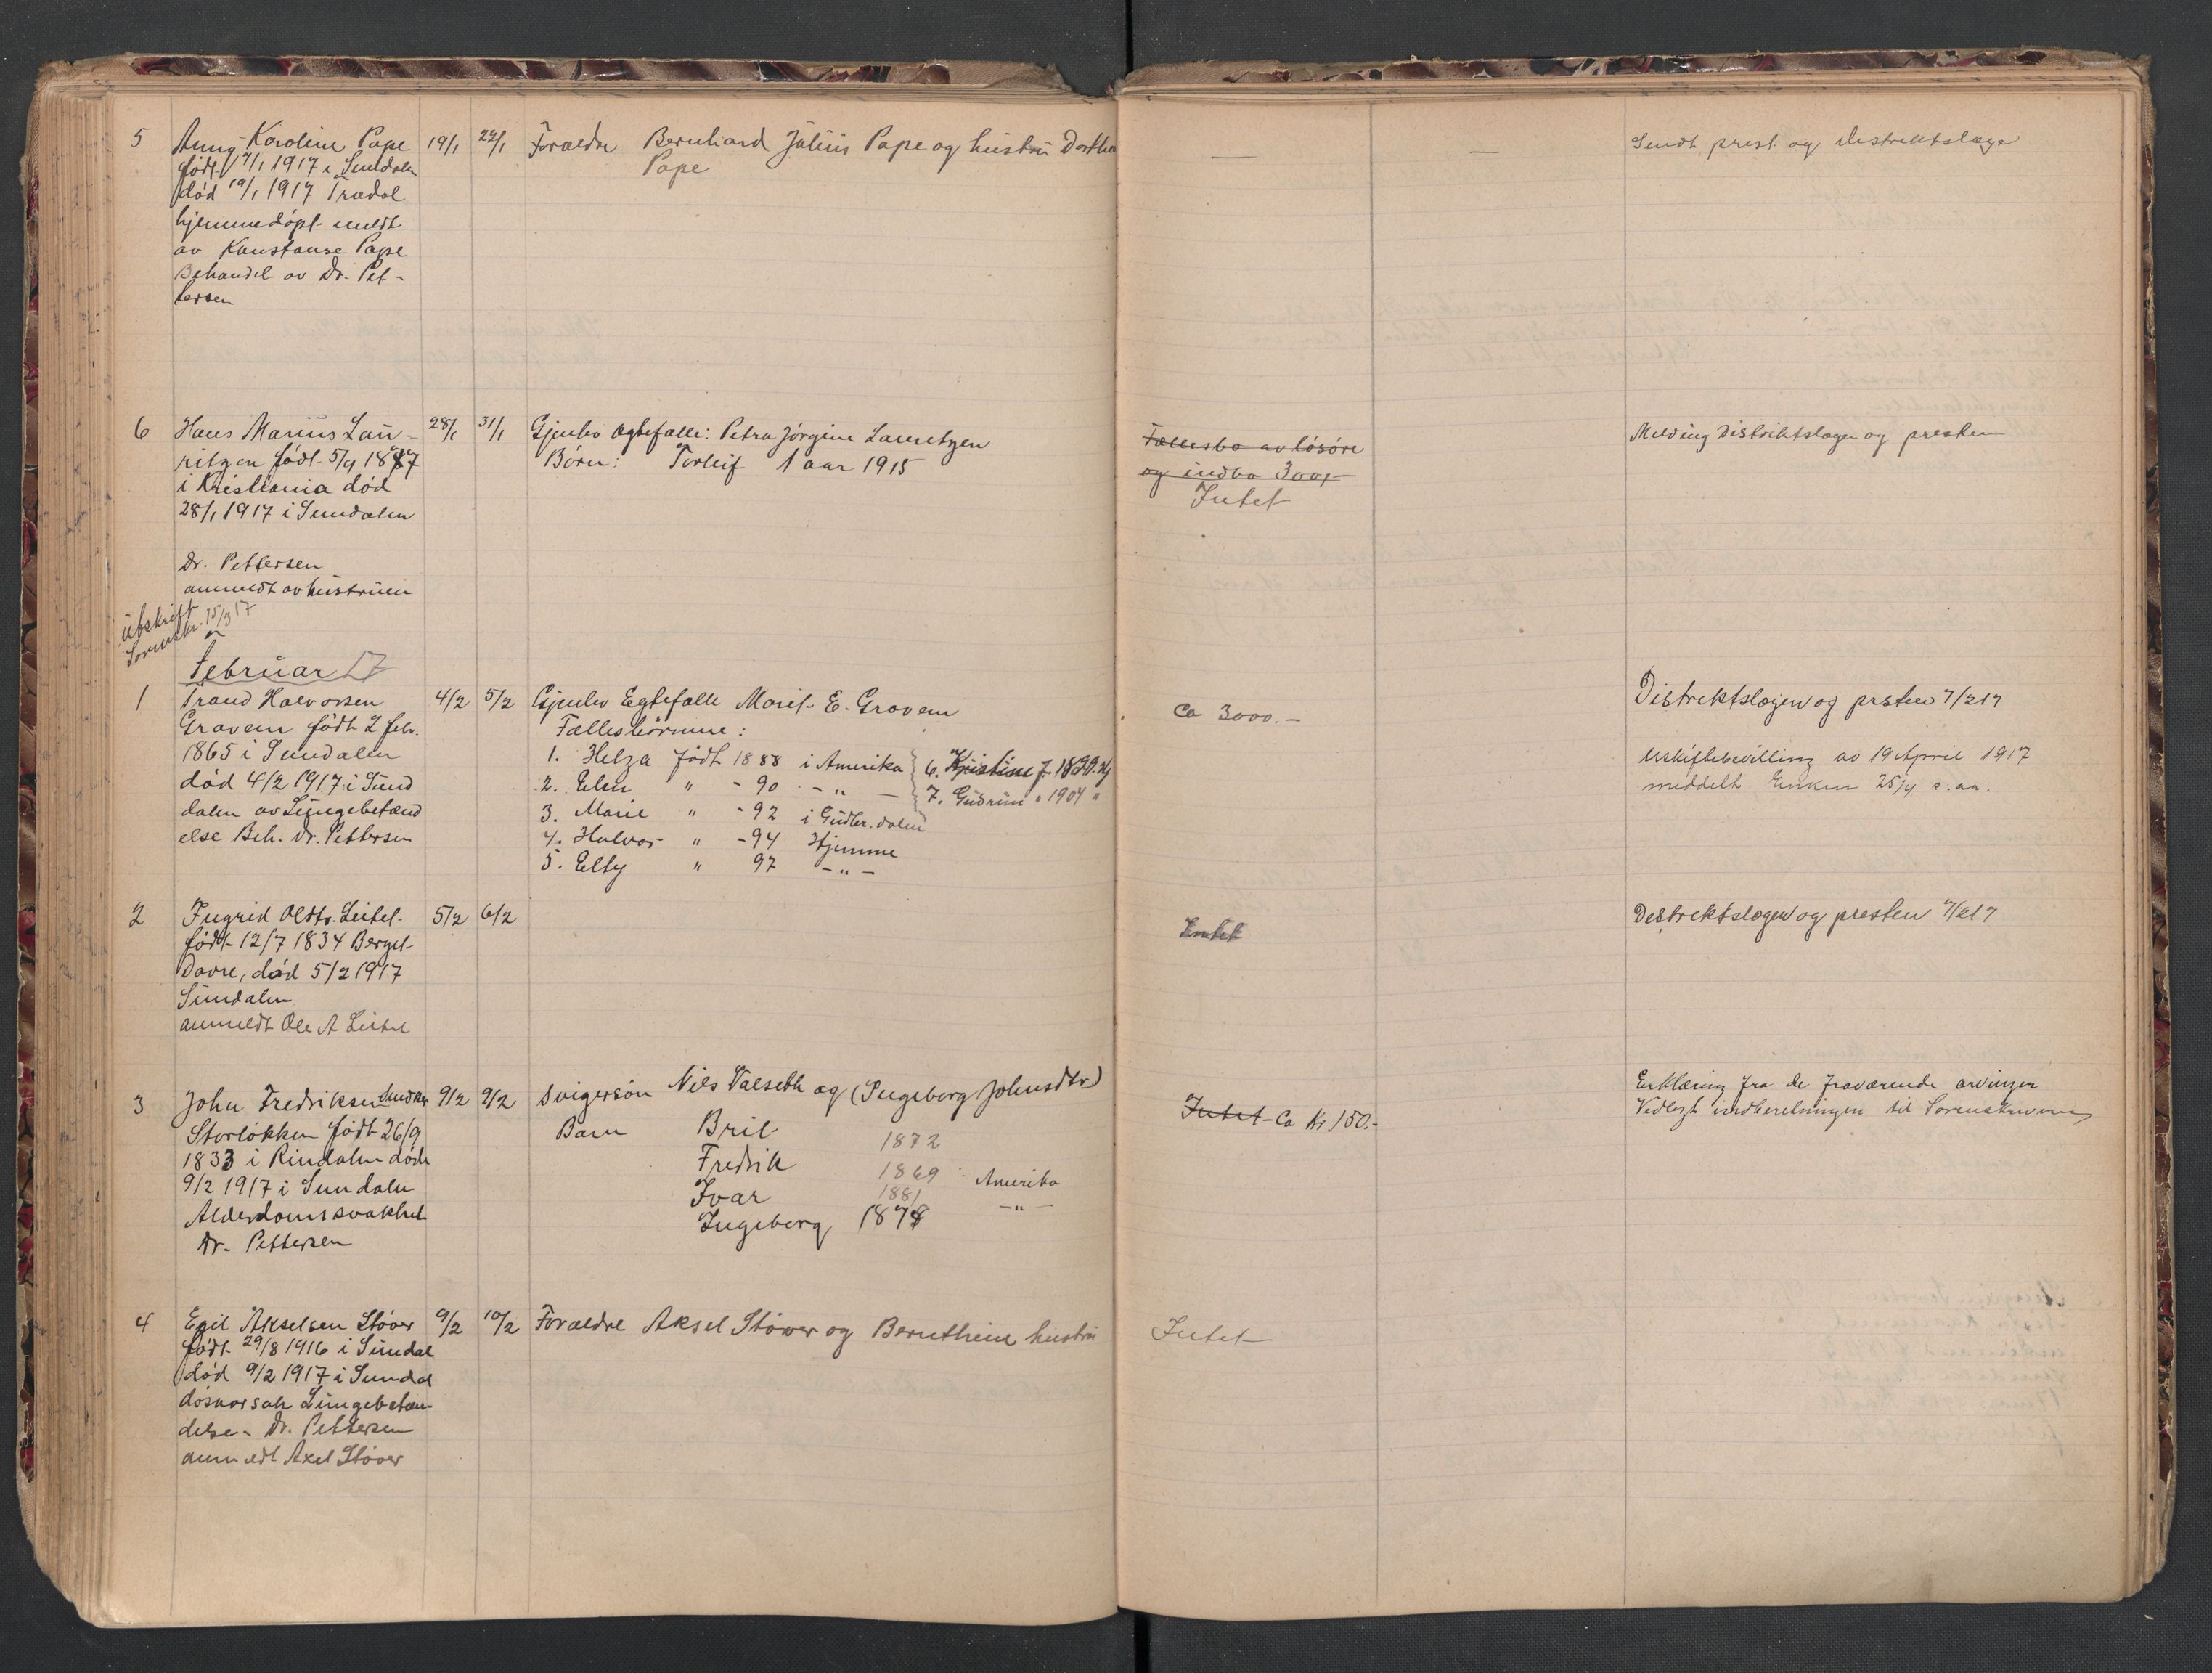 5 Anny Karoline Pape 19/1 22/1 Forældre Bernhard Julius Pape og hustru Dorthea — — Sendt prest og distriktslæge
født 7/1 1917 i Sundalen Pape
død 19/1 1917 Trædal
hjemmedöpt meldt
av Konstanse Pape
Behandl av Dr. Pet-
tersen
6 Hans Marius Lau- 28/1 31/1 Gjenlev Egtefælle: Petra Jörgine Lauritzen Fællesbo av lösöre Melding Distriktslægen og presten
ritzen født 5/9 1887 Börn: Torleif 1 aar 1915 og indbo 300,-
i Kristiania død Intet
28/1 1917 i Sundalen
Dr. Pettersen
anmeldt av hustruen
Utskrift
Sorenskr. 15/3 17
Februar 17
1 Trond Halvorsen 4/2 5/2 Gjenlev Egtefælle Marit E. Gravem Ca 3000.- Distriktslægen og prsten 7/2 17
Gravem født 2 febr. Fællesbörnene:
1865 i Sundalen 1. Helga født 1888 i Amerika 6. Kristine f. 1899 Hj Uskiftebevilling av 19 April 1917
død 4/2 1917 i Sund 2. Elen " - 90 - " - 7. Gudrun " 1904 " meddelt Enken 25/4 s. aa.
dalen av Lungebetænd 3. Marie " - 92 i Gudbr. dalen
else Beh. Dr. Pettersen 4. Halvor " - 94 Hjemme
5. Elty " 97 - " -
2 Ingrid Oldtr. Leitel 5/2 6/2 Intet Destrektslægen og presten 7/2 17
født 12/7 1834 Berget
Dovre, død 5/2 1917
Sundalen
anmeldt Ole A Leitel
3 John Fredriksen 9/2 9/2 Svigersön Nils Valseth og (Ingeborg Johnsdtr) Intet - Ca Kr 150.- Erklæring fra de fraværende arvinger
Storlökken født 26/9 Barn Bril 1872 Vedlagt indberetningen til Sorenskriveren
1833 i Rindalen döde Fredrik 1869 Amerika
9/2 1917 i Sundalen Ivar 1881 - " -
Alderdomssvakhet Ingeborg 1878
Dr. Pettersen
4 Egil Akselsen Stöver 9/2 10/2 Forældre Aksel Stöwer og Bernthine hustru Intet
født 29/8 1916 i Sundal
død 9/2 1917 i Sundal
dösaarsak Lungebetæn-
delse - Dr. Pettersen
anmeldt Axel Stöver